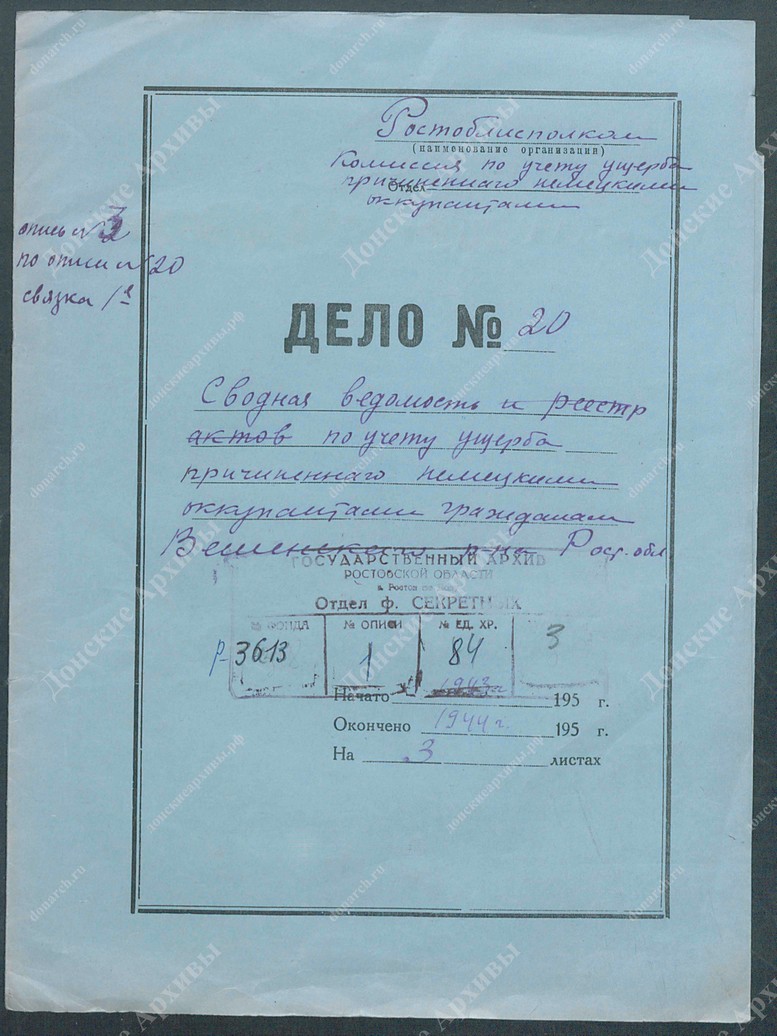 Ростоблисполком
(наименование организации)
Комиссия по учету ущерба
Отдел
причиненнаго немецкими
оккупантами
опись № 3
по описи № 20
связка 1я
ДЕЛО № 20
Сводная ведомость и реестр
актов по учету ущерба
причиненнаго немецкими
оккупантами гражданам
Вешенского р-на Рост. обл
ГОСУДАРСТВЕННЫЙ АРХИВ
РОСТОВСКОЙ ОБЛАСТИ
Отдел ф. СЕКРЕТНЫХ
№ ФОНДА № ОПИСИ № ЕД. ХР.
р-3613 1 84 3
Начато 1943г 195 г.
Окончено 1944 г. 195 г.
На 3 листах
Донские Архивы
donarch.ru
донскиеархивы.рф